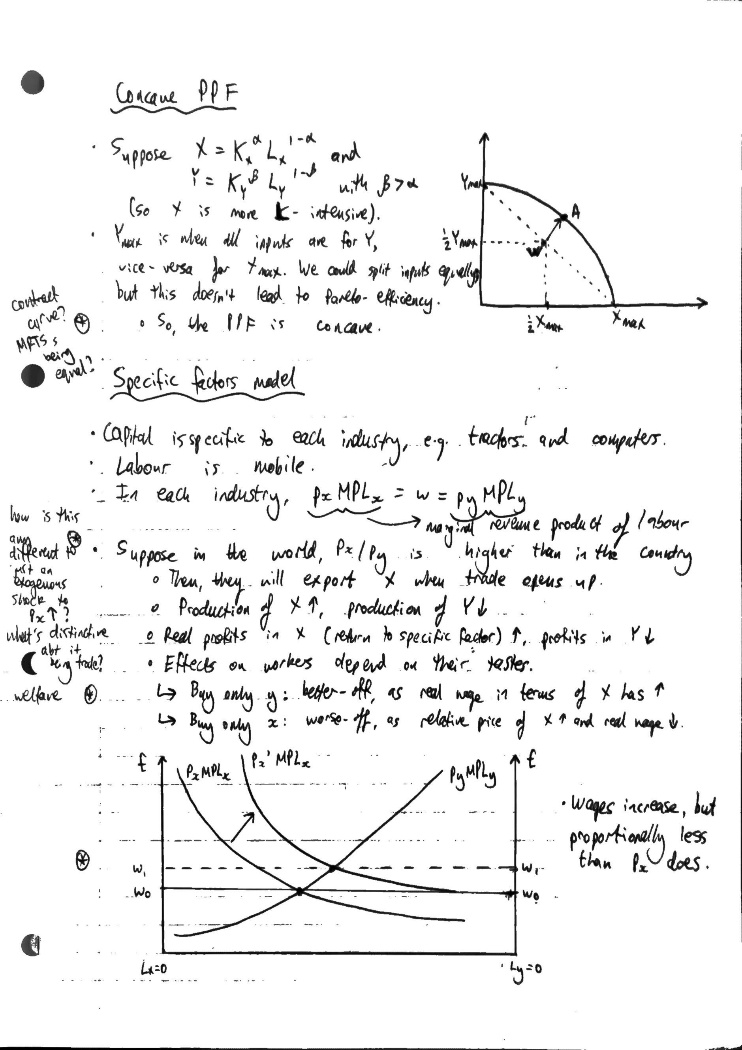 Concave PPF
• Suppose X = Kₓ^α Lₓ^1-α and
Y = K_Y^β L_Y^1-β with β>α
(so X is more K-intensive).
• Ymax is when all inputs are for Y,
vice-versa for Xmax. We could split inputs equally,
but this doesn't lead to Pareto-efficiency.
◦ So, the PPF is concave.
contract
curve?
MRTSs
being
equal?
Ymax
½Ymax
W
A
½Xmax
Xmax
Specific factors model
• Capital is specific to each industry, e.g. tractors and computers.
• Labour is mobile.
• In each industry, pₓMPLₓ = w = pyMPLy
→ marginal revenue product of labour
how is this
any
different to
just an
exogenous
shock to
Pₓ↑?
what's distinctive
abt it
being trade?
• Suppose in the world, Pₓ/Py is higher than in the country
◦ Then, they will export X when trade opens up.
◦ Production of X↑, production of Y↓
◦ Real profits in X (return to specific factor)↑, profits in Y↓
• Effects on workers depend on their tastes.
welfare
↳ Buy only y: better-off, as real wage in terms of X has ↑
↳ Buy only x: worse-off, as relative price of X↑ and real wage↓.
£
PₓMPLₓ
Pₓ'MPLₓ
pyMPLy
£
W₁
W₁
W₀
W₀
Lx=0
Ly=0
• Wages increase, but
proportionally less
than Pₓ does.